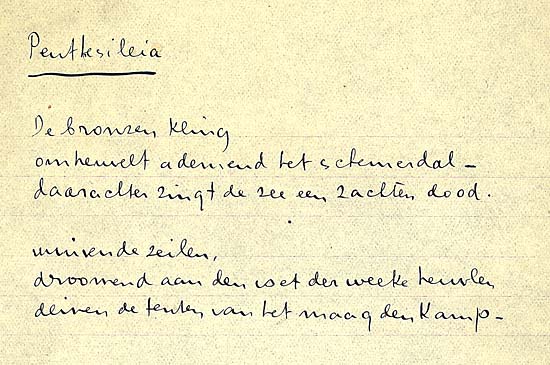 Penthesileia
De bronzen kling
omheuvelt ademend het schemerdal –
daarachter zingt de zee een zachten dood.
wuivende zeilen,
droomend aan den voet der weeke heuvlen
deinen de tenten van het maagdenkamp –